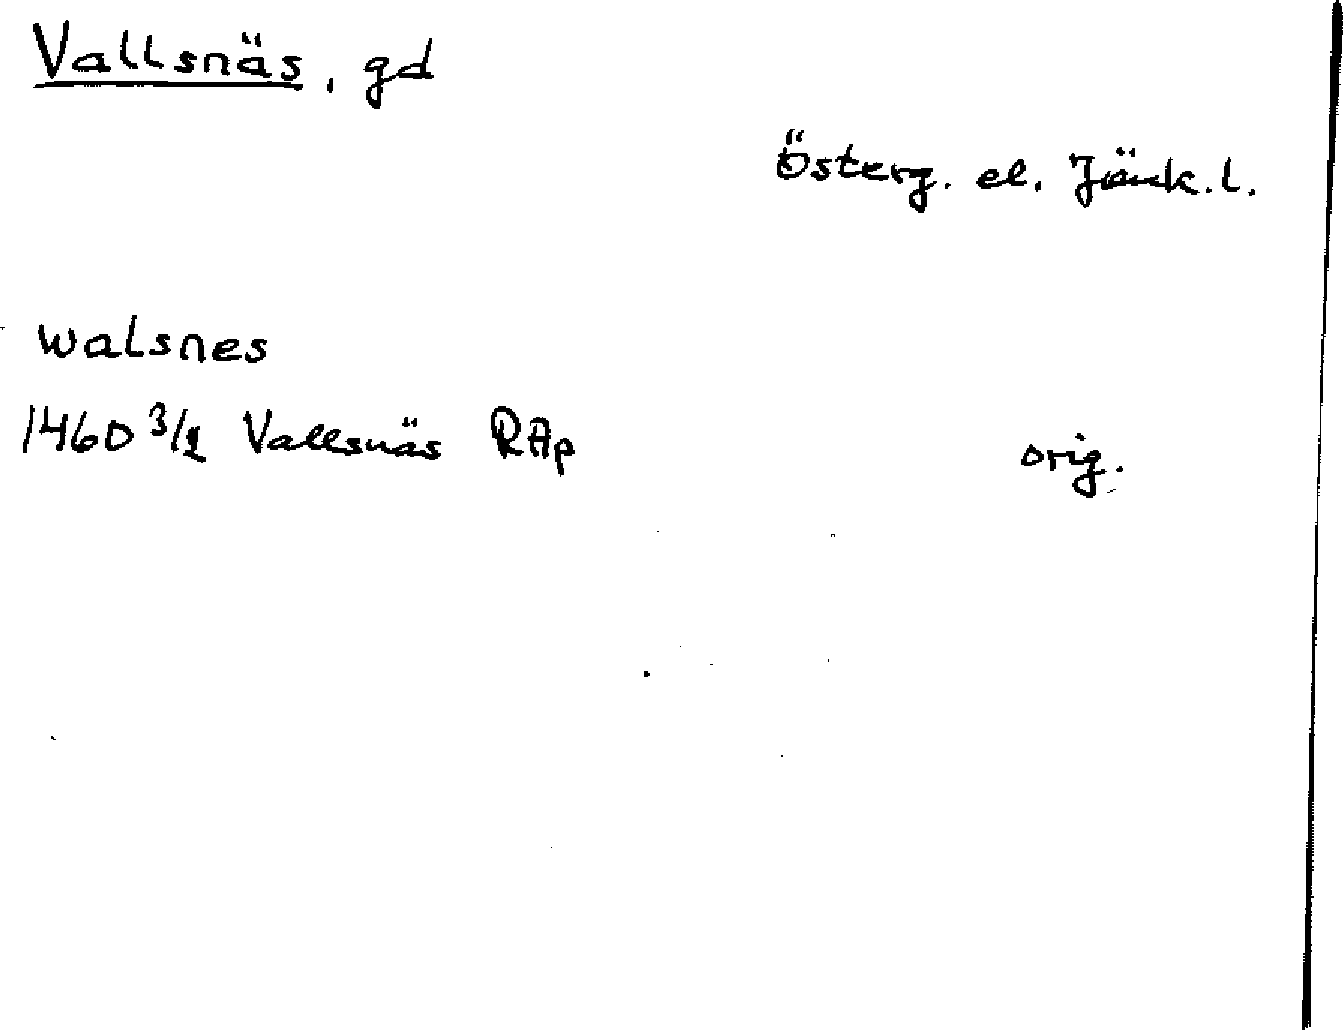 Vallsnäs, gd
Österg. el. Jönk. l.
walsnes
1460 3/2 Vallsnäs RAp orig.